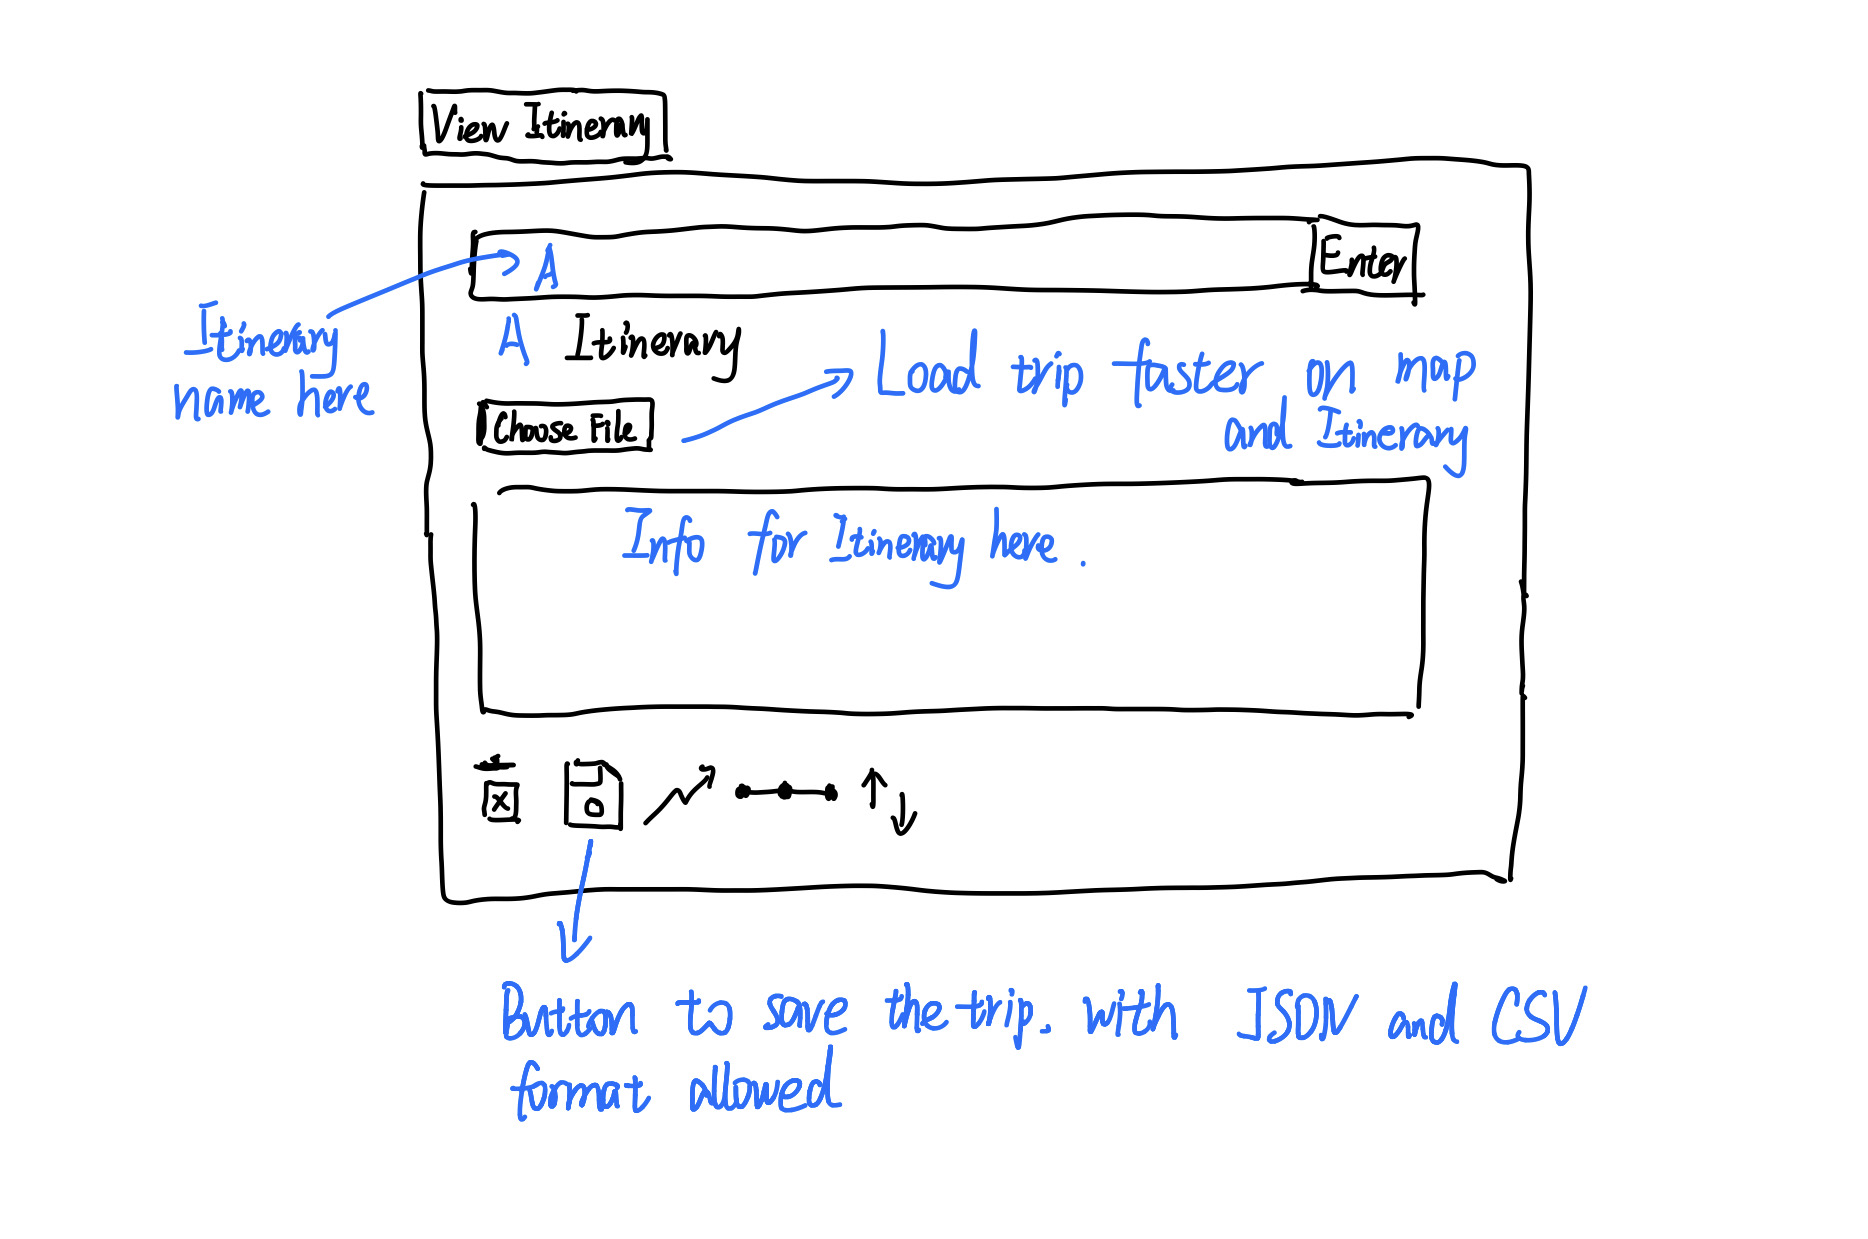 View Itinerary
A
Enter
Itinerary
name here
A Itinerary
Load trip faster on map
and Itinerary
Choose File
Info for Itinerary here.
Button to save the trip. with JSON and CSV
format allowed